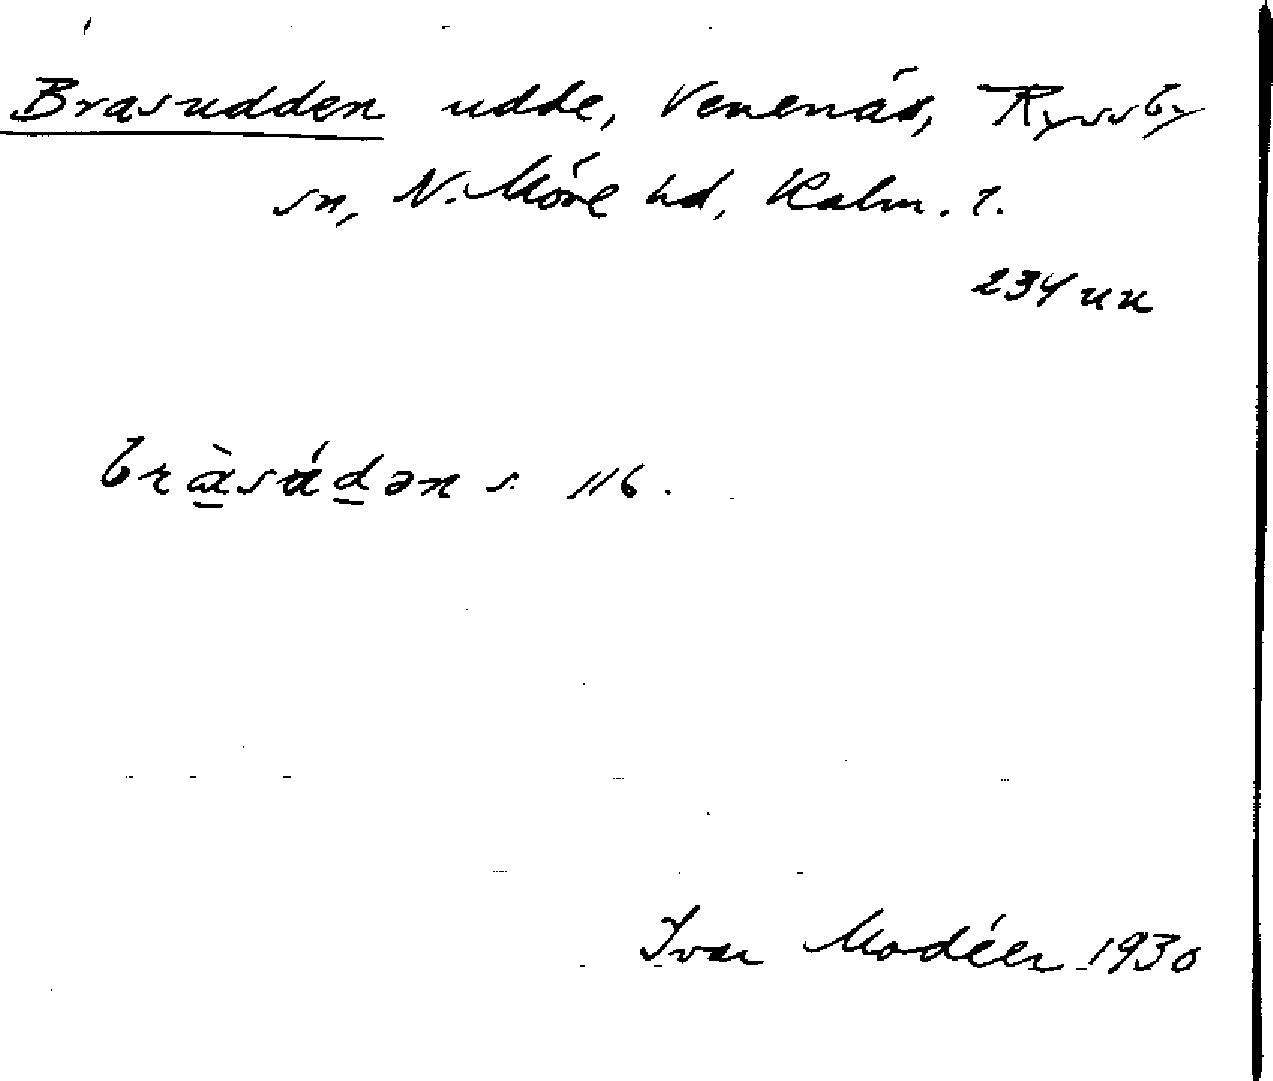 Brasudden udde, Venenäs, Ryssby
sn, N. Möre hd, Kalm. l.
234 uu
brà̱sádən s. 116.
Ivar Modéer 1930